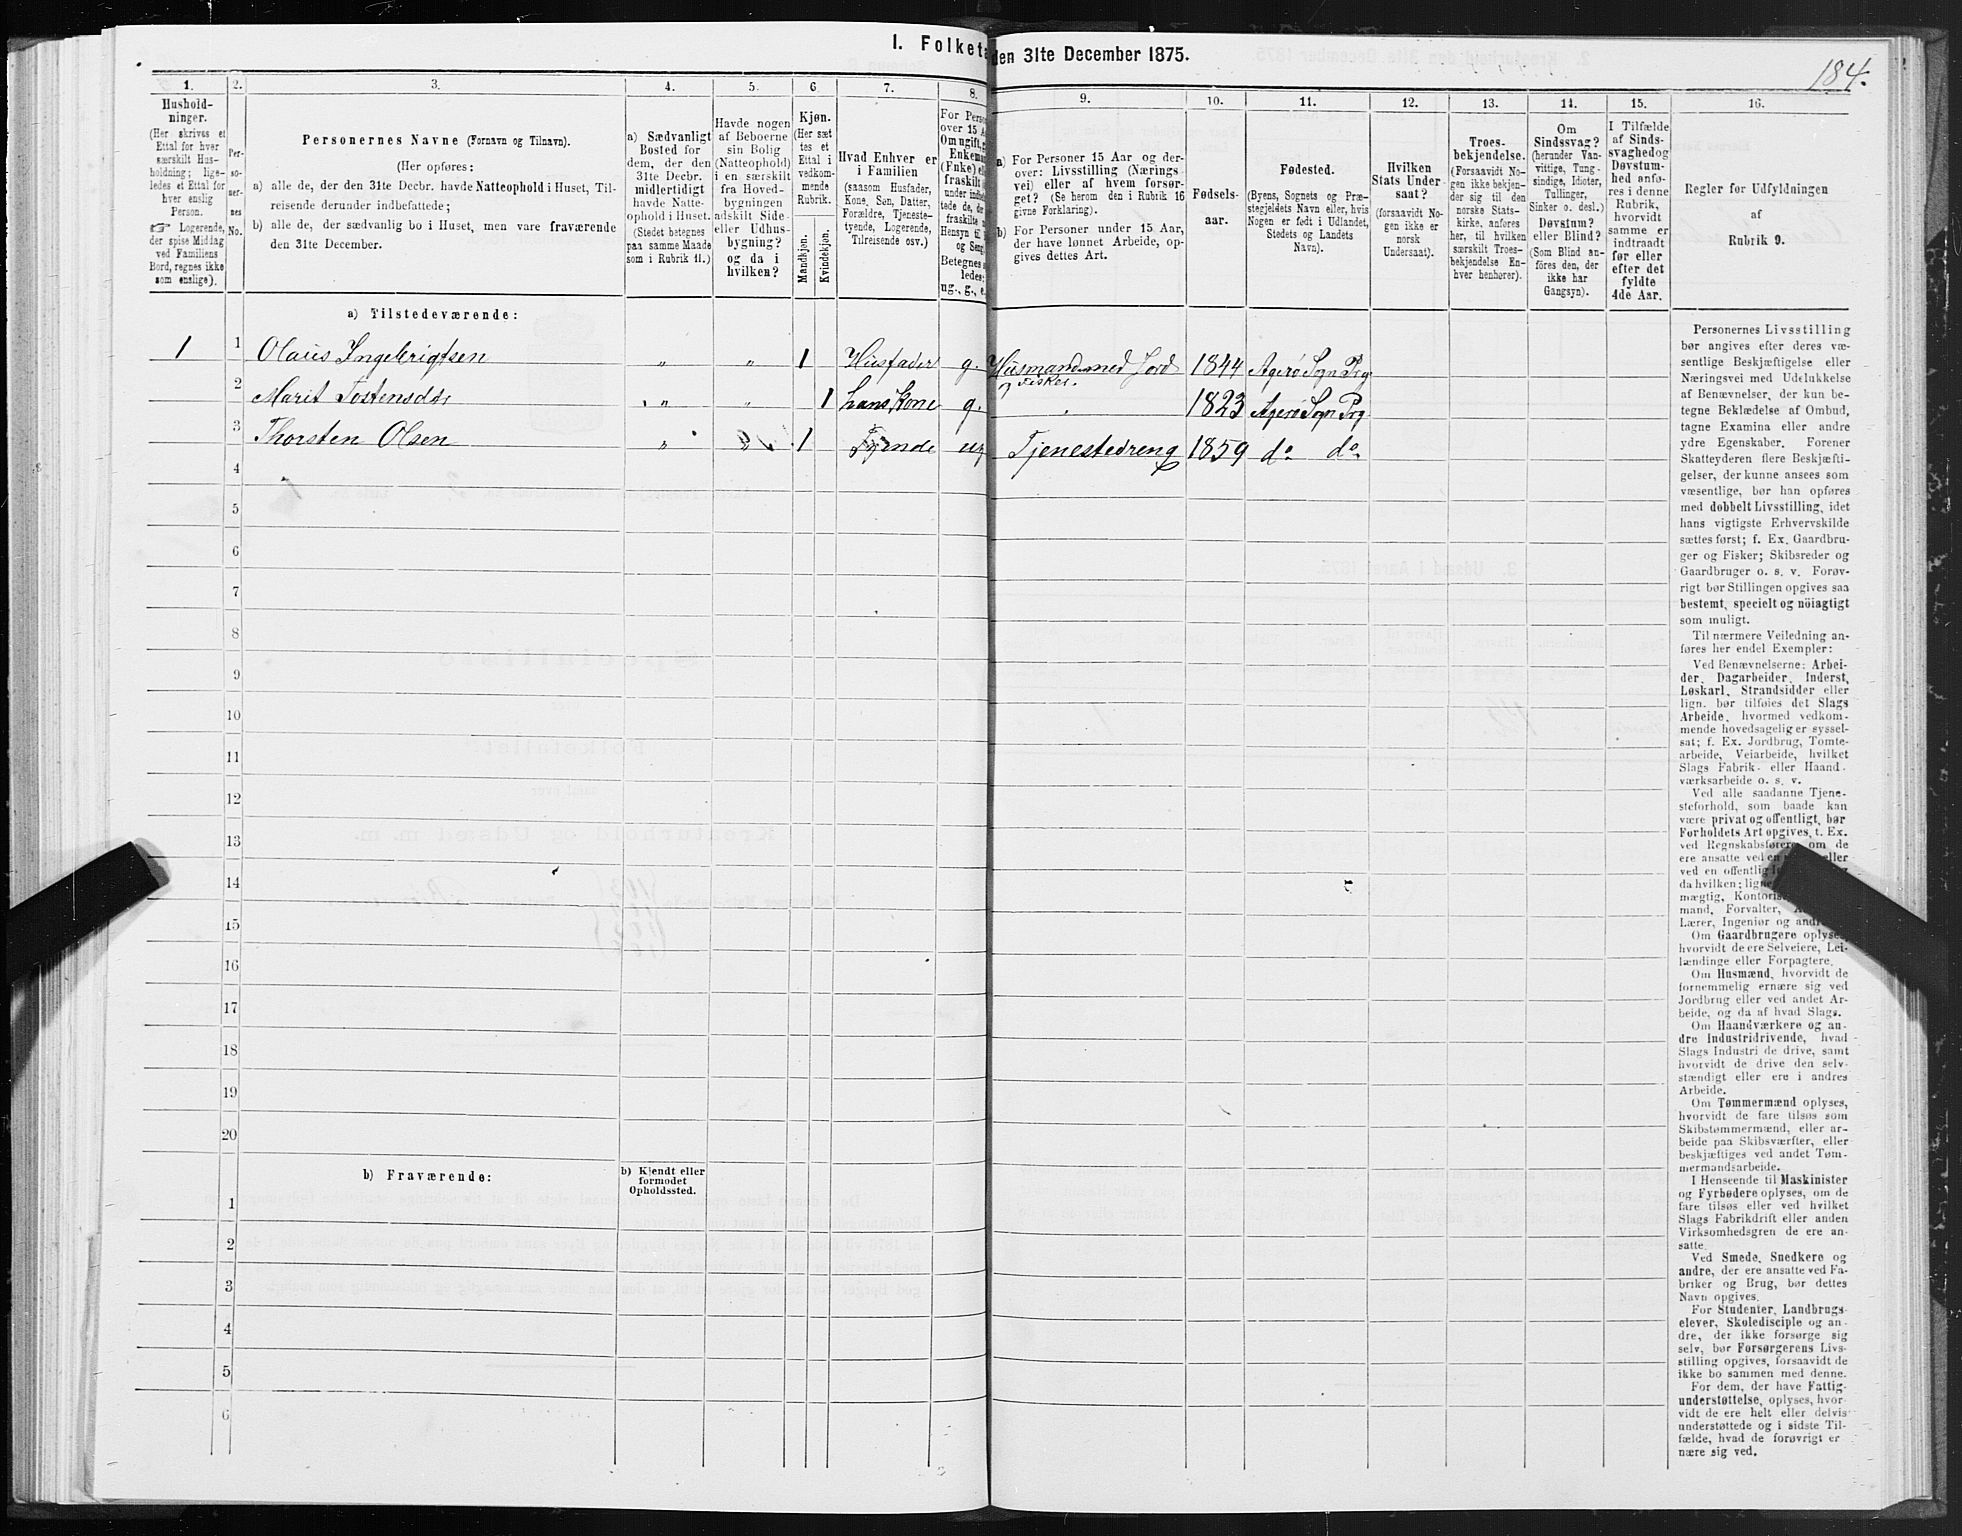 I. Folketæ
den 31te December 1875.
184.
1.
Hushold-
ninger.
(Her skrives et
Ettal for hver
særskilt Hus-
holdning; lige-
ledes et Ettal for
hver enslig
Person.
☞ Logerende,
der spise Middag
ved Familiens
Bord, regnes ikke
som enslige).
2.
Per-
so-
ner-
nes
No.
3.
Personernes Navne (Fornavn og Tilnavn).
(Her opføres:
a) alle de, der den 31te Decbr. havde Natteophold i Huset, Til-
reisende derunder indbefattede;
b) alle de, der sædvanlig bo i Huset, men vare fraværende
den 31te December.
4.
a) Sædvanligt
Bosted for
dem, der den
31te Decbr.
midlertidigt
havde Natte-
ophold i Huset.
(Stedet betegnes
paa samme Maade
som i Rubrik 11.)
5.
Havde nogen
af Beboerne
sin Bolig
(Natteophold)
i en særskilt
fra Hoved-
bygningen
adskilt Side-
eller Udhus-
bygning?
og da i
hvilken?
6.
Kjøn.
(Her sæt
tes et
Ettal i
vedkom-
mende
Rubrik.
Mandkjøn.
Kvindekjøn.
7.
Hvad Enhver er
i Familien
(saasom Husfader,
Kone, Søn, Datter,
Forældre, Tjeneste-
tyende, Logerende,
Tilreisende osv.)
8.
For Perso
over 15 A
Om ugift, g
Enkema
(Enke) el
fraskilt
under indb
tede de, d
fraskilte
Hensyn til
og Seng
Betegnes
ledes:
ug., g., e.
9.
a) For Personer 15 Aar og der-
over: Livsstilling (Nærings-
vei) eller af hvem forsør-
get? (Se herom den i Rubrik 16
givne Forklaring).
b) For Personer under 15 Aar,
der have lønnet Arbeide, op-
gives dettes Art.
10.
Fødsels-
aar.
11.
Fødested.
(Byens, Sognets og Præ-
stegjeldets Navn eller, hvis
Nogen er født i Udlandet,
Stedets og Landets
Navn).
12.
Hvilken
Stats Under-
saat?
(forsaavidt No-
gen ikke er
norsk
Undersaat).
13.
Troes-
bekjendelse.
(Forsaavidt No-
gen ikke bekjen-
der sig til den
norske Stats-
kirke, anføres
her, til hvilken
særskilt Troes-
bekjendelse En-
hver henhører).
14.
Om
Sindssvag?
(herunder Van-
vittige, Tung-
sindige, Idioter,
Tullinger,
Sinker o. desl.)
Døvstum?
eller Blind?
(Som Blind an-
föres den, der
ikke har
Gangsyn).
15.
I Tilfælde
af Sinds-
svaghed og
Døvstum-
hed anfø-
res i denne
Rubrik,
hvorvidt
samme er
indtraadt
før eller
efter det
fyldte
4de Aar.
16.
Regler for Udfyldningen
af
Rubrik 9.
a) Tilstedeværende:
1 1 Olaus Ingebrigtsen „ „ 1 Husfader g. Husmand med Jord 1844 Agerö Sogn Prg.
og Fisker.
2 Marit Tostensdtr „ „ 1 hans Kone g. „ 1823 Agerö Sogn Prg
3 Thorsten Olsen „ „ 1 Tjende ug Tjenestedreng 1859 do do
4
5
6
7
8
9
10
11
12
13
14
15
16
17
18
19
20
b) Fraværende:
b) Kjendt eller
formodet
Opholdssted.
1
2
3
4
5
6
Personernes Livsstilling
bør angives efter deres væ-
sentlige Beskjæftigelse eller
Næringsvei med Udelukkelse
af Benævnelser, der kun be-
tegne Beklædelse af Ombud,
tagne Examina eller andre
ydre Egenskaber. Forener
Skatteyderen flere Beskjæfti-
gelser, der kunne ansees som
væsentlige, bør han opføres
med dobbelt Livsstilling, idet
hans vigtigste Erhvervskilde
sættes først; f. Ex. Gaardbru-
ger og Fisker; Skibsreder og
Gaardbruger o. s. v. Forøv-
rigt bør Stillingen opgives saa
bestemt, specielt og nöiagtigt
som muligt.
Til nærmere Veiledning an-
føres her endel Exempler:
Ved Benævnelserne: Arbei-
der, Dagarbeider, Inderst,
Løskarl, Strandsidder eller
lign. bør tilføies det Slags
Arbeide, hvormed vedkom-
mende hovedsagelig er syssel-
sat; f. Ex. Jordbrug, Tomte-
arbeide, Veiarbeide, hvilket
Slags Fabrik- eller Haand-
værksarbeide o. s. v.
Ved alle saadanne Tjene-
steforhold, som baade kan
være privat og offentligt, bør
Forholdets Art opgives, t. Ex.
ved Regnskabsførere, om de
ere ansatte ved en eller
ved en offentlig
da hvilken; lign
mægtig, Kontoris
mand, Forvalter,
Lærer, Ingeniør og and
Om Gaardbrugere oplyses,
hvorvidt de ere Selveiere, Lei-
lændinge eller Forpagtere.
Om Husmænd, hvorvidt de
fornemmelig ernære sig ved
Jordbrug eller ved andet Ar-
beide, og da af hvad Slags.
Om Haandværkere og an-
dre Industridrivende, hvad
Slags Industri de drive, samt
hvorvidt de drive den selv-
stændigt eller ere i andres
Arbeide.
Om Tømmermænd oplyses,
hvorvidt de fare tilsøs som
Skibstømmermænd, eller ar-
beide paa Skibsværfter, eller
beskjæftiges ved andet Tøm-
mermandsarbeide.
I Henseende til Maskinister
og Fyrbødere oplyses, om de
fare tilsøs eller ved hvilket
Slags Fabrikdrift eller anden
Virksomhedsgren de ere an-
satte.
Ved Smede, Snedkere og
andre, der ere ansatte ved Fa-
briker og Brug, bør dettes
Navn opgives.
For Studenter, Landbrugs-
elever, Skoledisciple og an-
dre, der ikke forsørge sig
selv, bør Forsørgerens Livs-
stilling opgives, forsaavidt de
ikke bo sammen med denne.
For dem, der have Fattig-
understøttelse, oplyses, hvor-
vidt de ere helt eller delvis
understøttede og i sidste Til-
fælde, hvad de forøvrigt er-
nære sig ved.